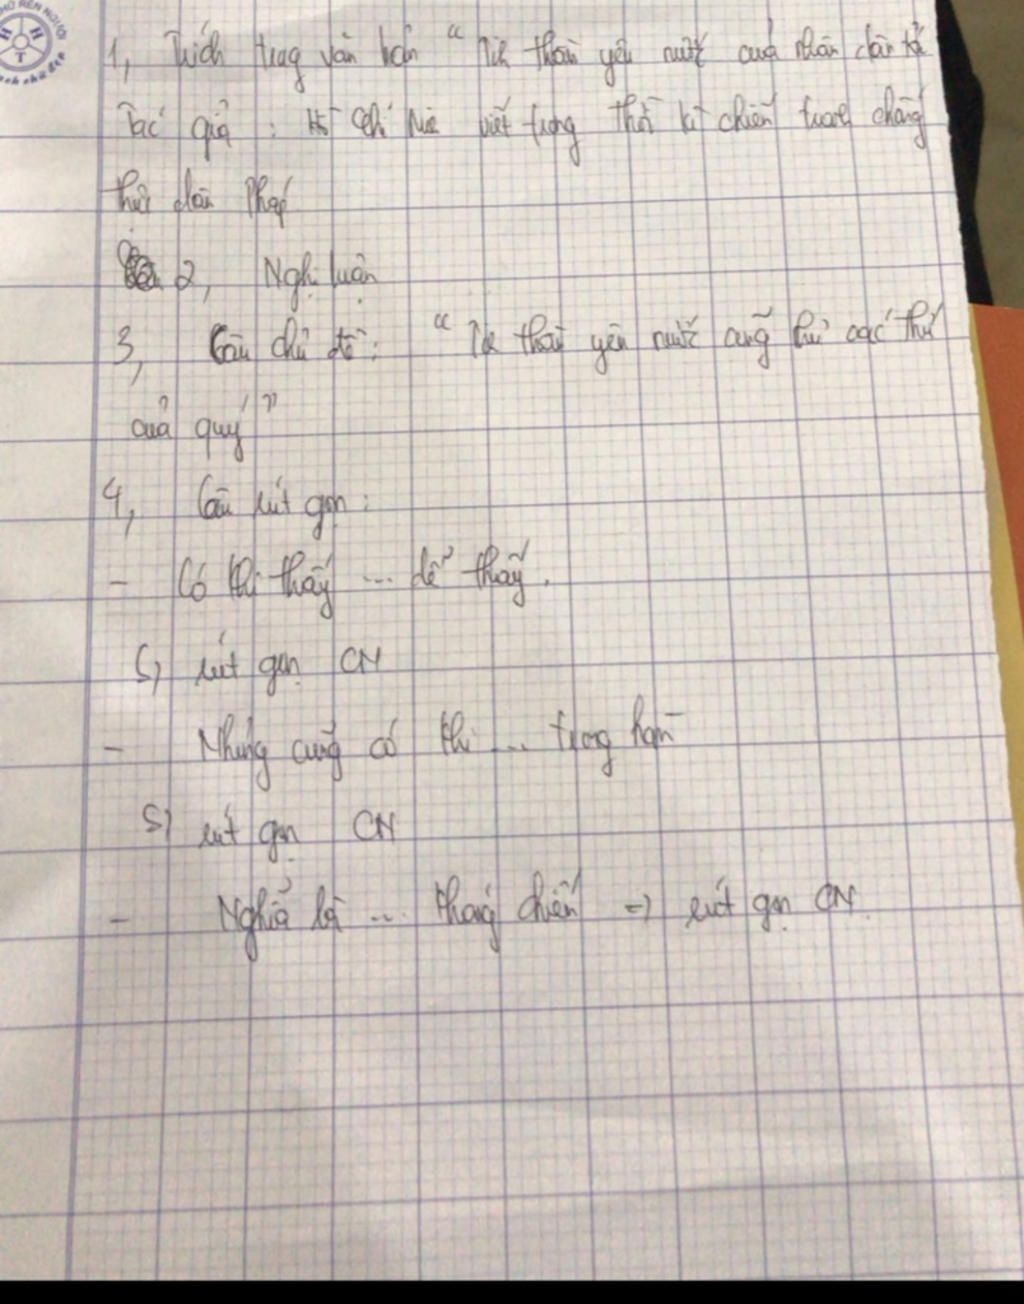 1, Trích trong văn bản "Tinh thần yêu nước của nhân dân ta
Tác giả : Hồ Chí Minh viết trong thời kì chiến tranh chống
thực dân Pháp
2, Nghị luận
3, Câu chủ đề : "Tinh thần yêu nước cũng như các thứ
của quý"
4, Câu rút gọn :
- Có khi thấy ... dễ thấy.
=> rút gọn CN
- Nhưng cũng có khi ... trong hòm
=> rút gọn CN
- Nghĩa là ... kháng chiến => rút gọn CN.